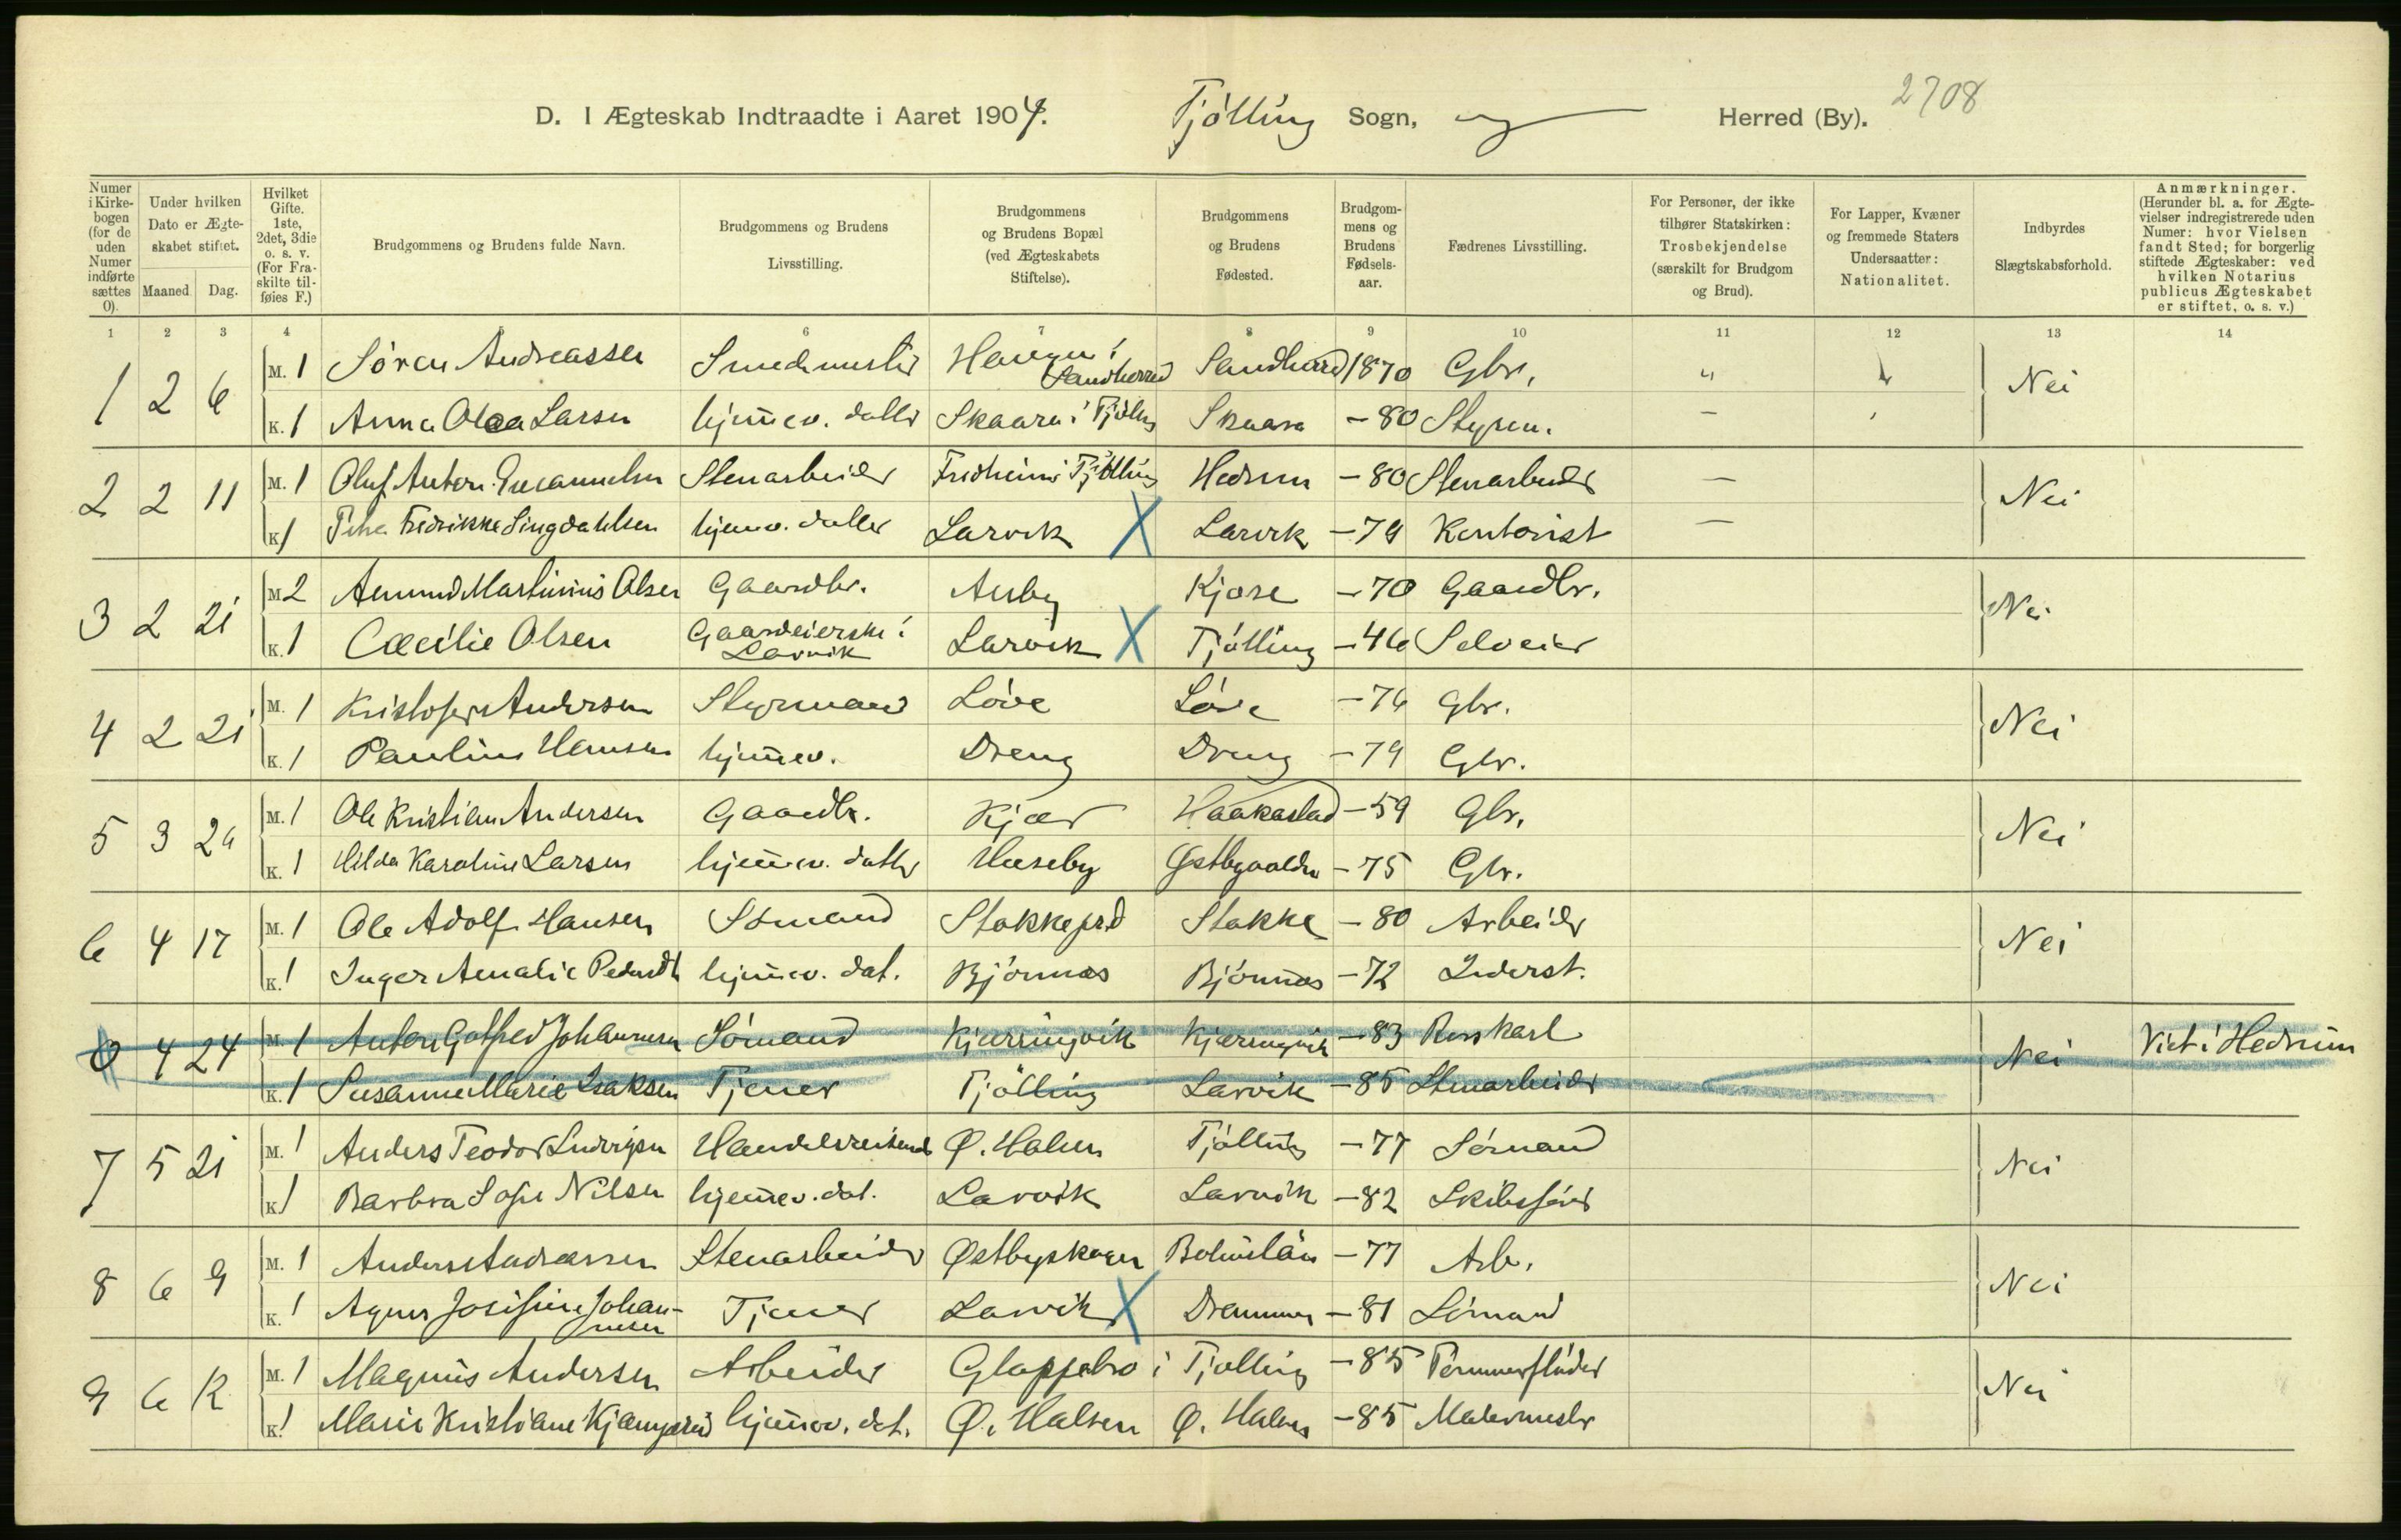 D. I Ægteskab Indtraadte i Aaret 1904. Tjölling Sogn, Herred (By). 2708
Numer i Kirkebogen (for de uden Numer indførte sættes 0).
Under hvilken Dato er Ægteskabet stiftet.
Maaned. Dag.
Hvilket Gifte. 1ste, 2det, 3die o. s. v. (For Fraskilte tilføies F.)
Brudgommens og Brudens fulde Navn.
Brudgommens og Brudens Livsstilling.
Brudgommens og Brudens Bopæl (ved Ægteskabets Stiftelse).
Brudgommens og Brudens Fødested.
Brudgommens og Brudens Fødselsaar.
Fædrenes Livsstilling.
For Personer, der ikke tilhører Statskirken: Trosbekjendelse (særskilt for Brudgom og Brud).
For Lapper, Kvæner og fremmede Staters Undersaatter: Nationalitet.
Indbyrdes Slægtskabsforhold.
Anmærkninger. (Herunder bl. a. for Ægtevielser indregistrerede uden Numer: hvor Vielsen fandt Sted; for borgerlig stiftede Ægteskaber: ved hvilken Notarius publicus Ægteskabet er stiftet, o. s. v.)
1 2 3 4 5 6 7 8 9 10 11 12 13 14
1 2 6 M. 1 Sören Andreassen Smedmester Haugen i Sandherred Sandherred 1870 Gbr. " Nei
K. 1 Anna Olea Larsen hjemmev. datter Skaara i Tjölling Skaara -80 Styrm. -
2 2 11 M. 1 Oluf Anton Emanuelsen Stenarbeider Fridheim i Tjölling Hedrum -80 Stenarbeider - Nei
K. 1 Fredrikke Lingdahlsen hjemmev. datter Larvik X Larvik -79 Kontorist -
3 2 21 M. 2 Amund Martinius Olsen Gaardbr. Auby Kjose -70 Gaardbr. Nei
K. 1 Cæcilie Olsen Gaardeierske i Larvik Larvik X Tjölling -46 Selveier
4 2 21 M. 1 Kristofer Andersen Styrmand Löve Löve -76 Gbr. Nei
K. 1 Pauline Hansen hjemmev. Dreng Dreng -79 Gbr.
5 3 24 M. 1 Ole Kristian Andersen Gaardbr. Kjær Haakastad -59 Gbr. Nei
K. 1 Hilda Karoline Larsen hjemmev. datter Huseby -75 Gbr.
6 4 17 M. 1 Ole Adolf Hansen Sömand Stokke prd Stokke -80 Arbeider Nei
K. 1 Inger Amalie Pedersdt hjemmev. dat. Björnnes Björnnes -72 Inderst.
0 4 24 M. 1 Anton Gotfred Johannesen Sömand Kjærringvik Kjærringvik -83 Nei Viet i Hedrum
K. 1 Susanne Marie Isaksen Tjener Tjölling Larvik -85 Stenarbeider
7 5 21 M. 1 Anders Teodor Ludvigsen Handelsreisende Ø. Halsen Tjölling -77 Sömand Nei
K. 1 Barbra Sofie Nilsen hjemmev. dat. Larvik Larvik -82 Skibsförer
8 6 9 M. 1 Anders Andreassen Stenarbeider Østbyskogen Bohuslän -77 Arb. Nei
K. 1 Agnes Josefine Johannesen Tjener Larvik X Drammen -81 Sömand
9 6 12 M. 1 Magnus Andersen Arbeider Gloppebro i Tjölling -85 Tömmerfløder Nei
K. 1 Marie Kristiane hjemmev. dat. Ø. Halsen Ø. Halsen -85 Malermester